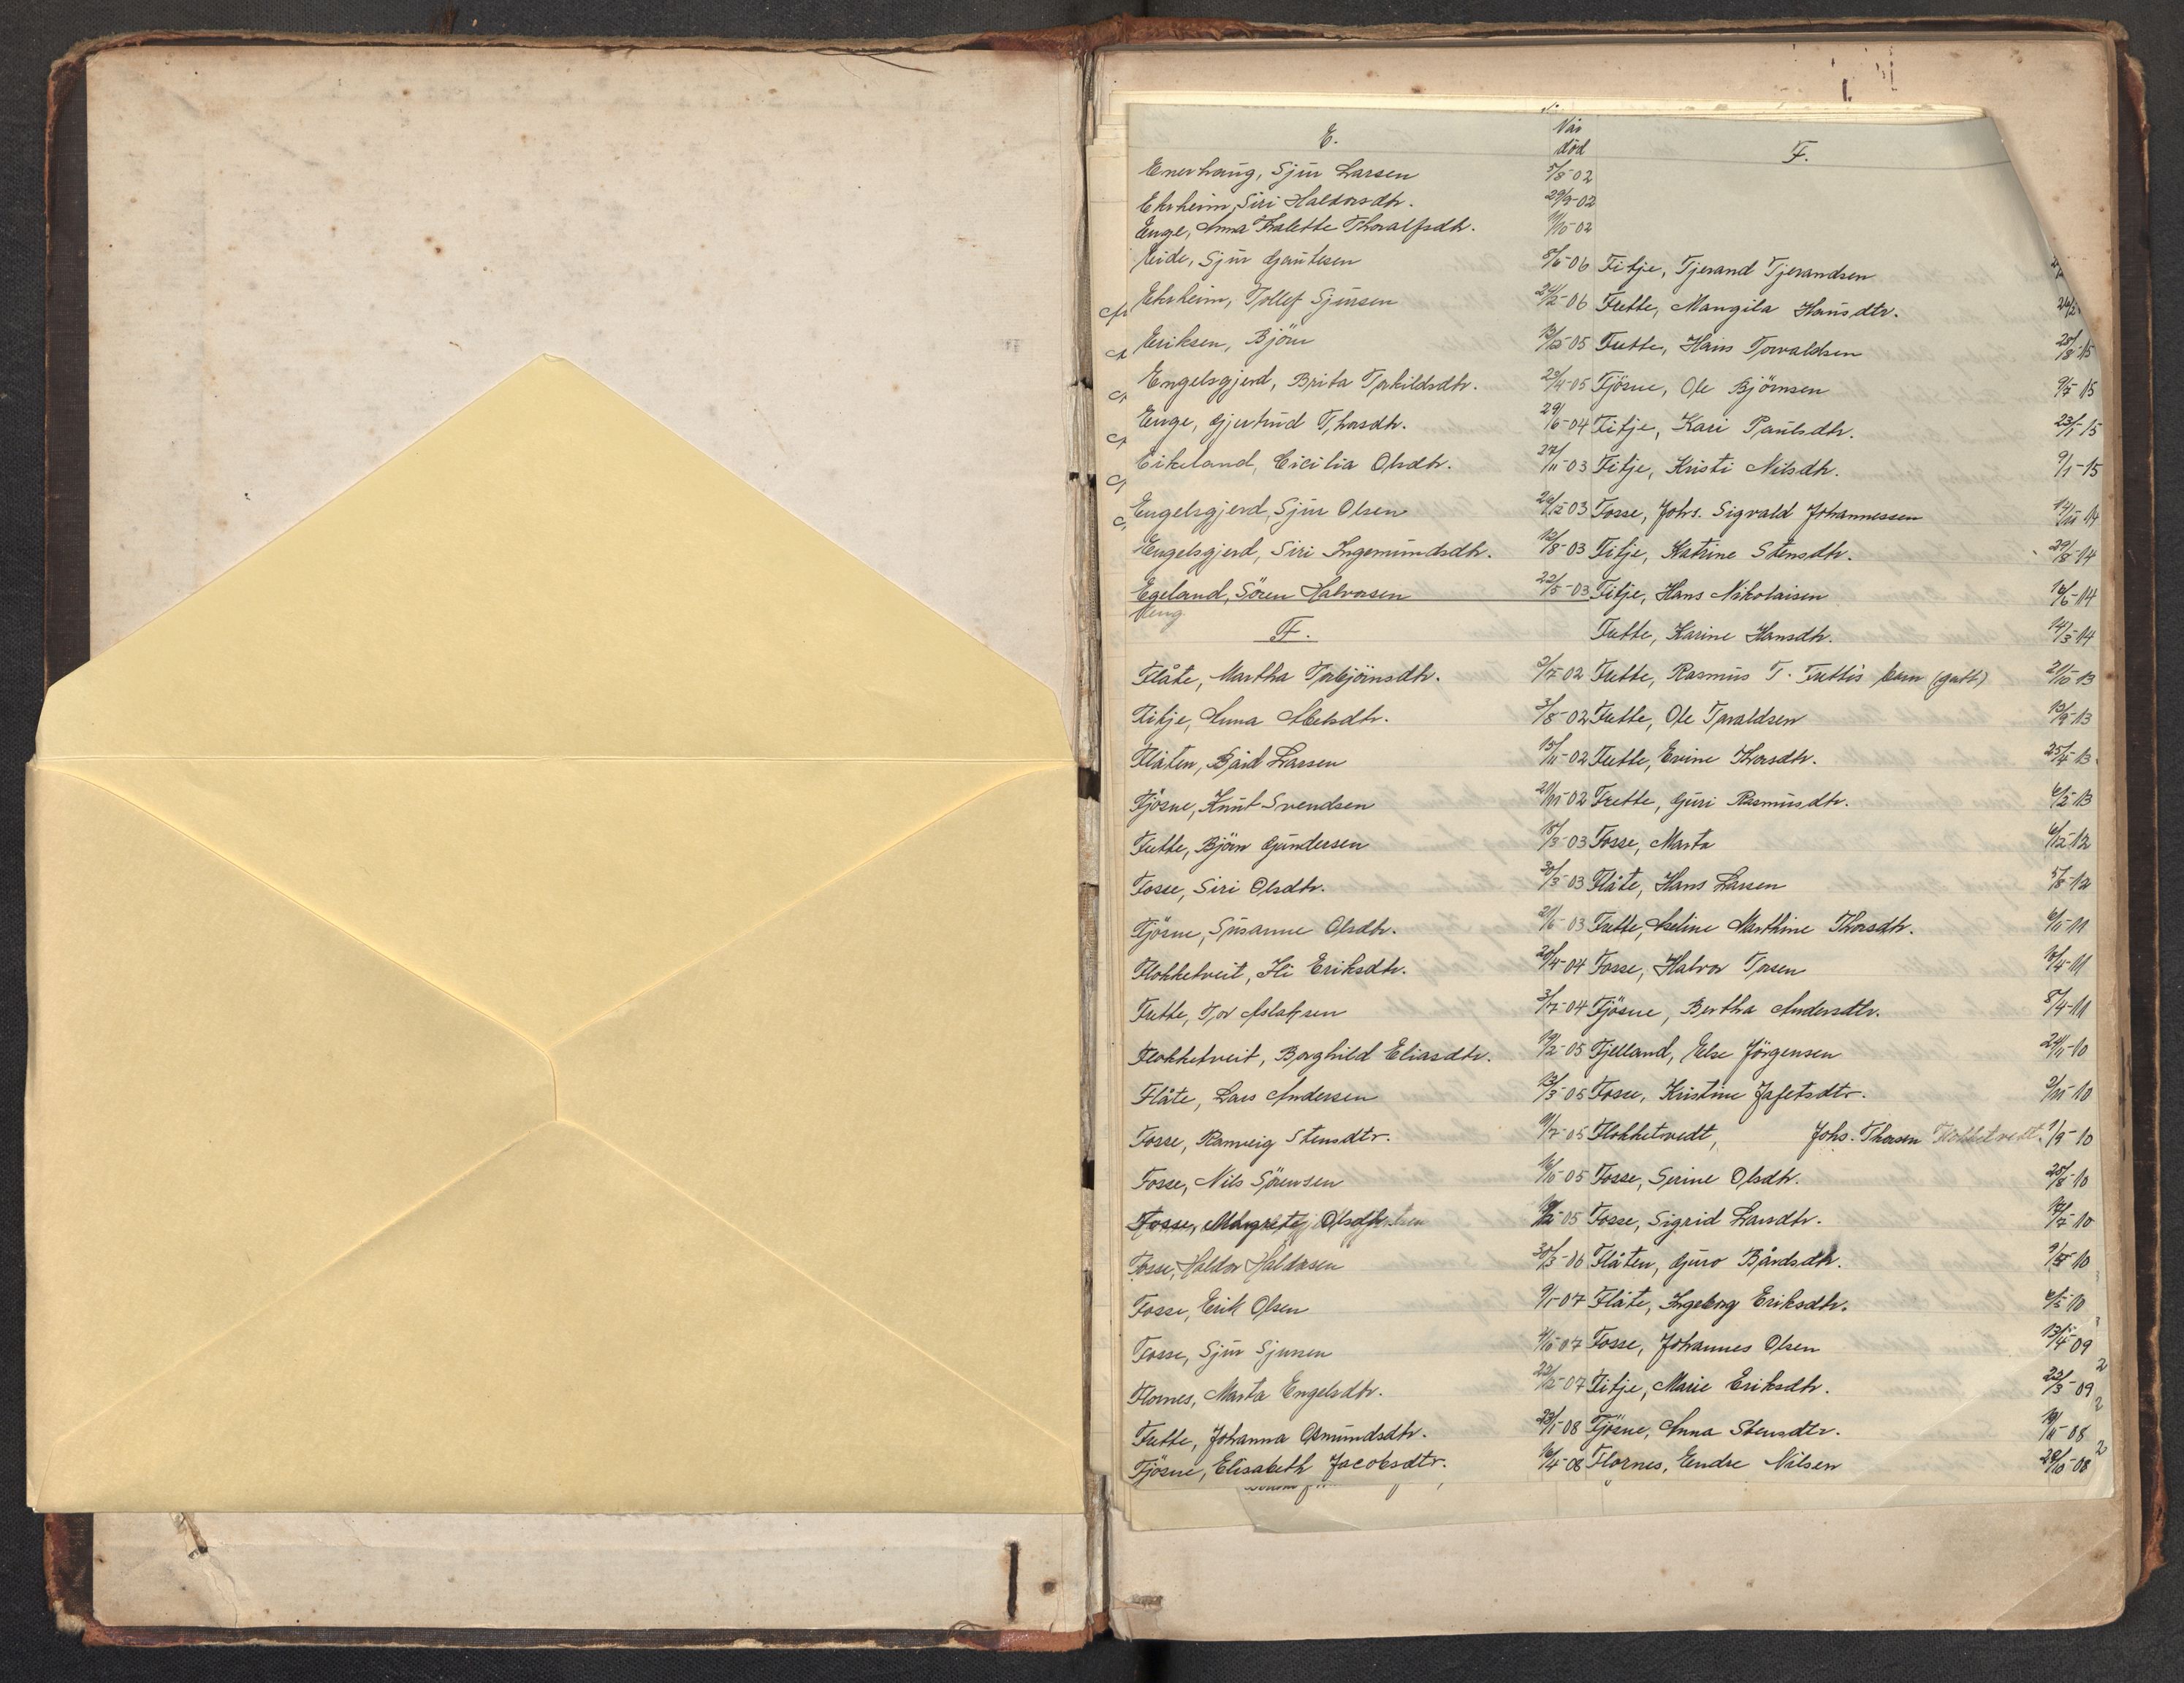 E.
Når
død
Enerhaug, Sjur Larsen 5/8-02
Ekrheim, Siri Haldorsdtr. 29/9-02
Enge, Anna Malette Thoralfsdtr. 11/10-02
Eide, Sjur Gautesen 8/6-06
Ekrheim, Tollef Sjursen 24/2-06
Eriksen, Björn 13/12-05
Engelsgjerd, Brita Torkildsdtr. 23/4-05
Enge, Gjertrud Thorsdtr. 29/6-04
Eikeland, Cicilia Olsdtr. 27/11-03
Engelsgjerd, Sjur Olsen 26/12-03
Engelsgjerd, Siri Ingemundsdtr. 12/8-03
Egeland, Sören Halvorsen 22/5-03
F.
Flåte, Martha Torbjörnsdtr. 2/7-02
Fitje, Anna Abelsdtr. 3/8-02
Flåten, Bård Larsen 15/11-02
Fjösne, Knut Svendsen 21/11-02
Futte, Björn Gundersen 18/3-03
Fosse, Siri Olsdtr. 30/3-03
Fjösne, Susanne Olsdtr. 21/6-03
Flokketveit, Ili Eriksdtr. 20/4-04
Futte, Tor Aslaksen 3/7-04
Flokketveit, Borghild Eliasdtr. 19/2-05
Flåte, Lars Andersen 13/3-05
Fosse, Ranveig Stensdtr. 11/7-05
Fosse, Nils Sörensen 16/10-05
Fosse, Margrete Olsdtr. -05
Fosse, Haldor Haldorsen 30/3-06
Fosse, Erik Olsen 9/1-07
Fosse, Sjur Sjursen 4/10-07
Flornes, Marta Engelsdtr. 22/12-07
Futte, Johanna Osmundsdtr. 23/1-08
Fjösne, Elisabeth Jacobsdtr. 16/4-08
F.
Fitje, Tjerand Tjerandsen
Futte, Mangila Hansdtr. 24/2
Futte, Hans Torvaldsen 28/8-15
Fjösne, Ole Björnsen 9/7-15
Fitje, Kari Paulsdtr. 23/1-15
Fitje, Kristi Nilsdtr. 9/1-15
Fosse, Johs. Sigvald Johannessen 14/11-14
Fitje, Katrine Stensdtr. 29/8-14
Fitje, Hans Nikolaisen 16/6-14
Futte, Karine Hansdtr. 14/3-14
Futte, Rasmus T. Futtis barn (gutt) 21/10-13
Futte, Ole Torvaldsen 13/9-13
Futte, Evine Thorsdtr. 25/4-13
Futte, Guri Rasmusdtr. 6/2-13
Fosse, Marta 6/12-12
Flåte, Hans Larsen 5/8-12
Futte, Aseline Marthine Thorsdtr. 6/11-11
Fosse, Halvor Torsen 16/4-11
Fjösne, Bertha Andersdtr. 8/4-11
Fjelland, Else Jörgensen 24/11-10
Fosse, Kristine Jafetsdtr. 2/11-10
Flokketvedt, Johs. Thorsen Flokketvedt. 1/9-10
Fosse, Serine Olsdtr. 25/8-10
Fosse, Sigrid Larsdtr. 17/7-10
Flåten, Guro Bårdsdtr. -10
Flåte, Ingeborg Eriksdtr. 6/5-10
Fosse, Johannes Olsen 13/4-09
Fitje, Marie Eriksdtr. 23/3-09
Fjösne, Anna Stensdtr. 19/11-08
Flornes, Endre Nilsen 28/10-08